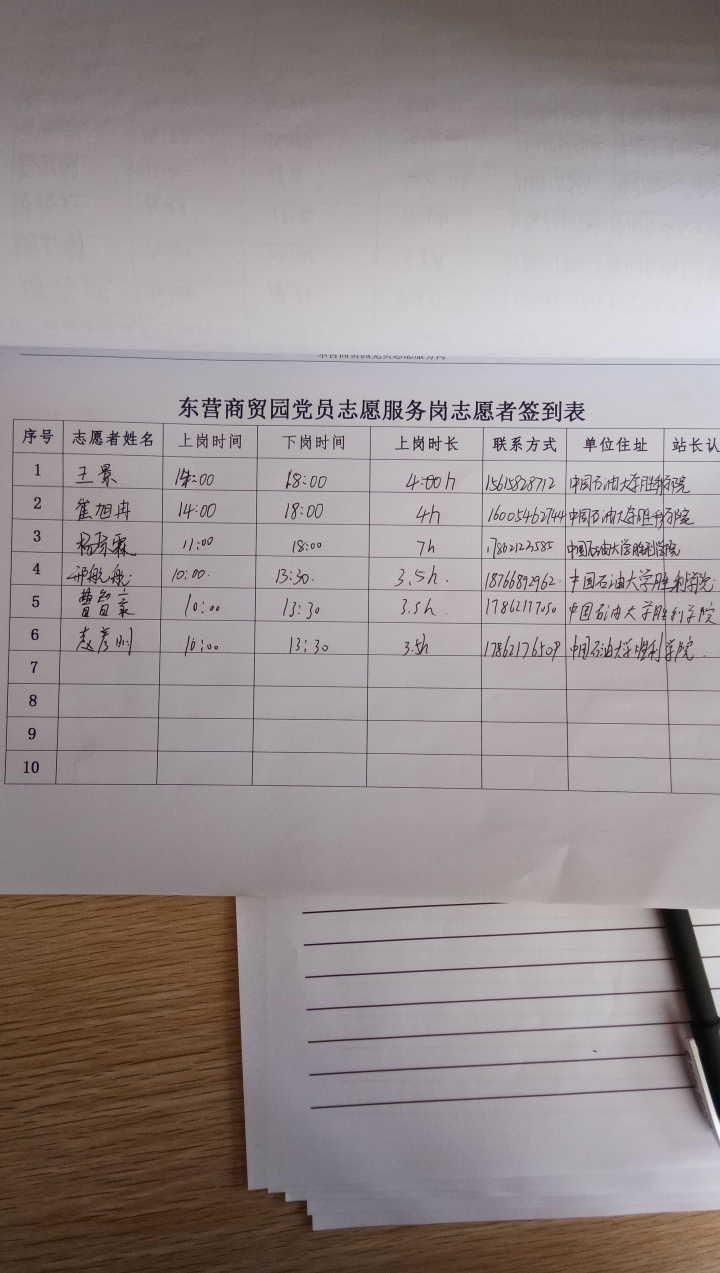 东营商贸园党员志愿服务岗志愿者签到表
序号 志愿者姓名 上岗时间 下岗时间 上岗时长 联系方式 单位住址 站长认
1 王景 14:00 18:00 4:00h 15615828712 中国石油大学胜利学院
2 崔旭冉 14:00 18:00 4h 16005462744 中国石油大学胜利学院
3 11:00 18:00 7h 17862123585 中国石油大学胜利学院
4 邢航航 10:00. 13:30. 3.5h. 18766892962. 中国石油大学胜利学院
5 10:00 13:30 3.5h. 17862177050 中国石油大学胜利学院
6 赵彦刚 10:00 13:30 3.5h 17862176509 中国石油大学胜利学院.
7
8
9
10